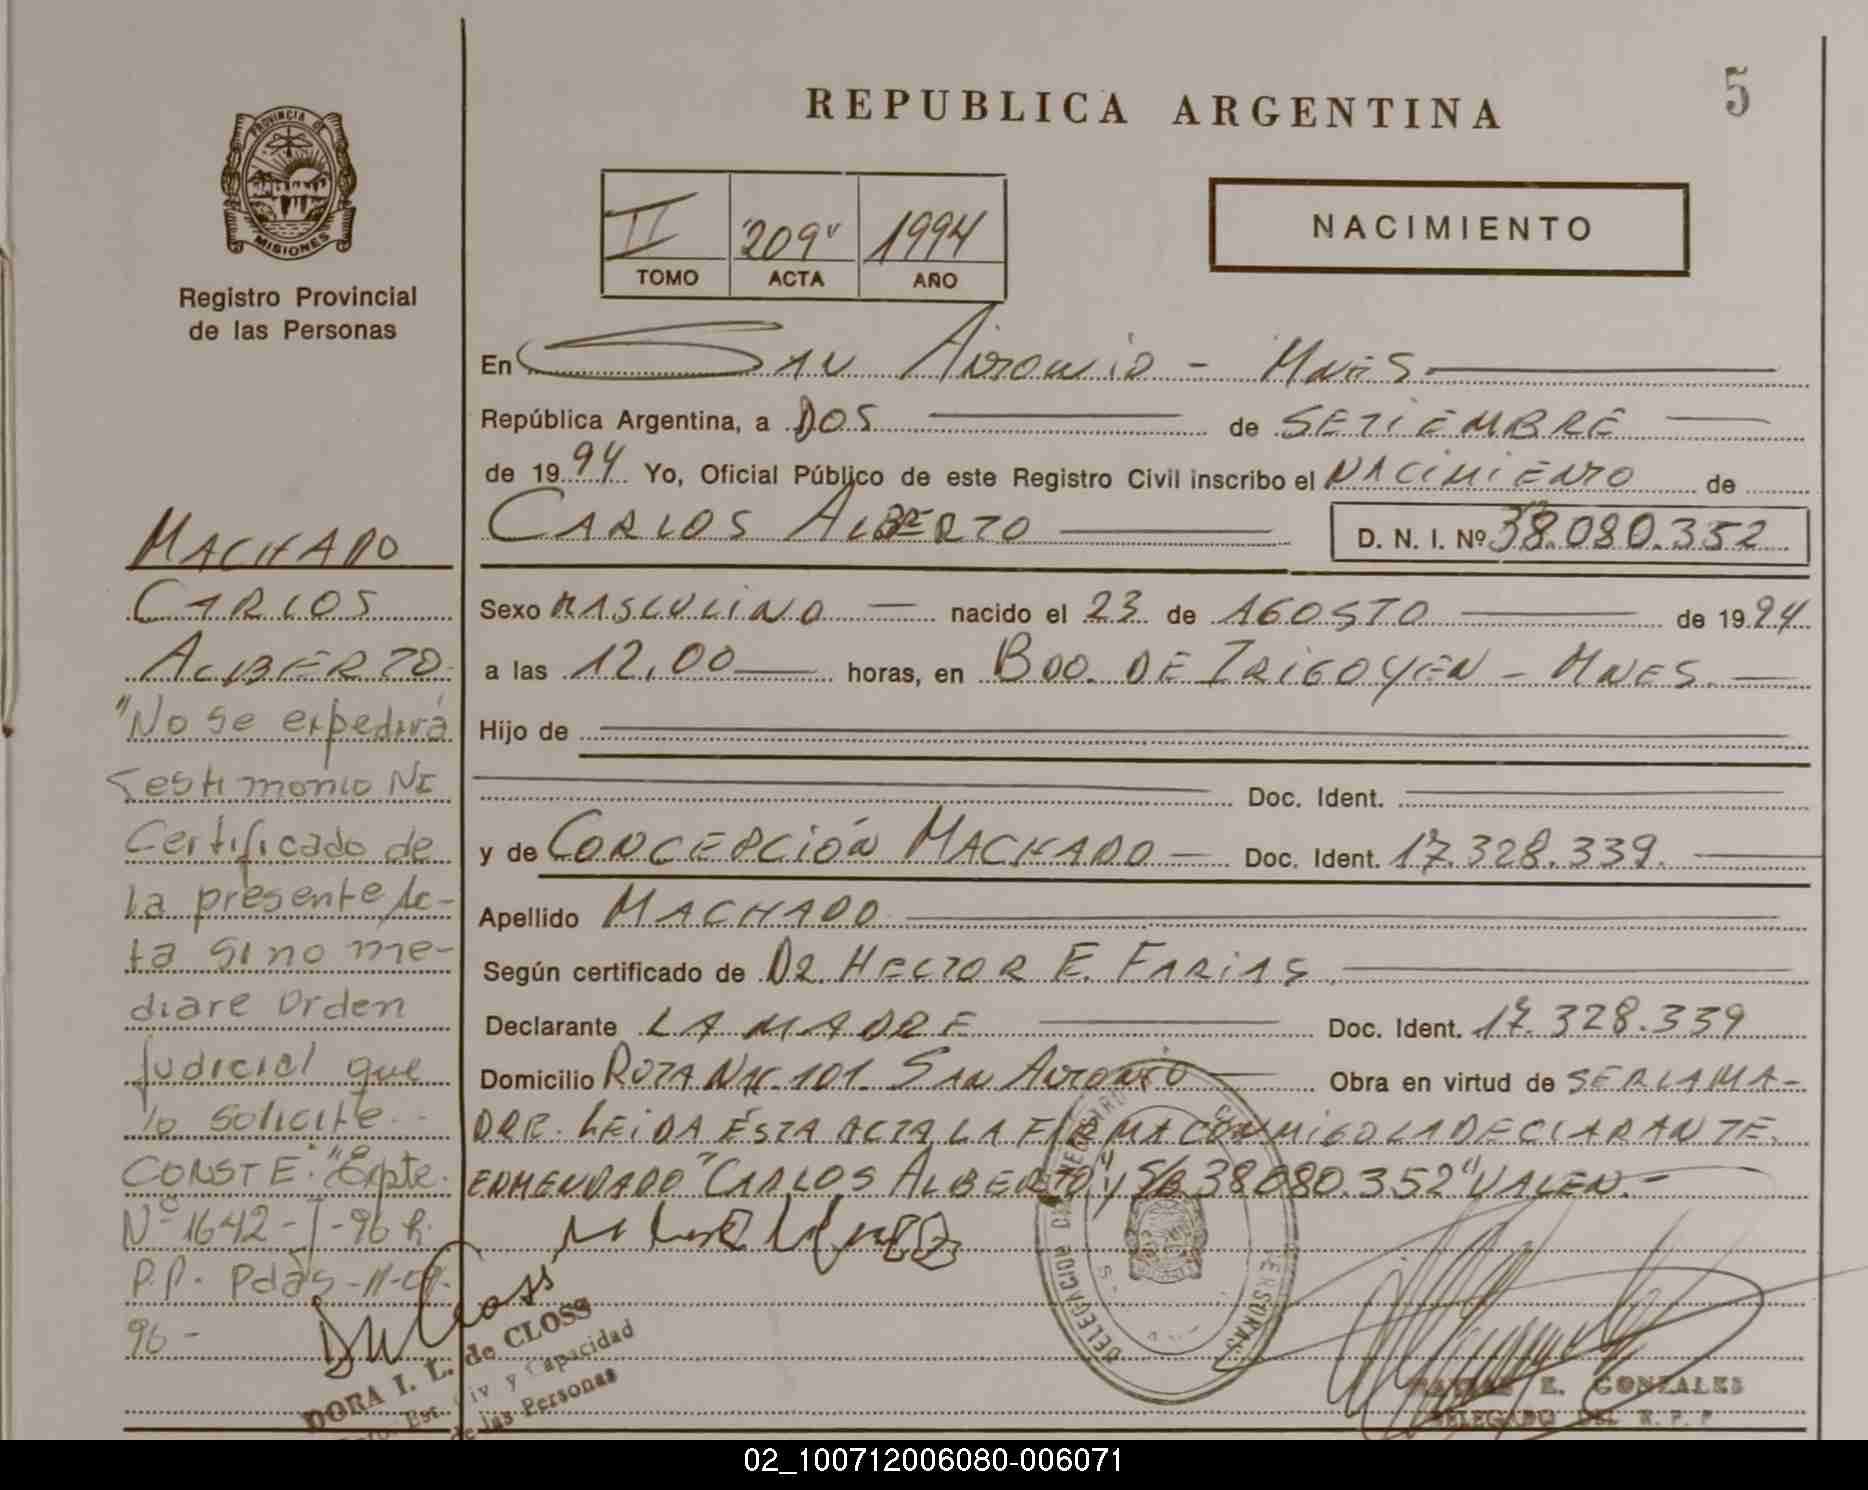 REPUBLICA ARGENTINA
5
PROVINCIA DE
MISIONES
Registro Provincial
de las Personas
II "209" 1994
TOMO ACTA AÑO
NACIMIENTO
En San Antonio - Mnes
República Argentina, a DOS de SETIEMBRE
de 1994 Yo, Oficial Público de este Registro Civil inscribo el NACIMIENTO de
CARLOS ALBERTO D. N. I. Nº 38.080.352
Sexo MASCULINO nacido el 23 de AGOSTO de 1994
a las 12,00 horas, en BDO. DE IRIGOYEN - MNES.
Hijo de
Doc. Ident.
y de CONCEPCIÓN MACHADO Doc. Ident. 17.328.339.
Apellido MACHADO
Según certificado de DR. HECTOR E. FARIAS
Declarante LA MADRE Doc. Ident. 17.328.339
Domicilio RUTA N 101. SAN ANTONIO Obra en virtud de SER LA MA-
DRE. LEIDA ÉSTA ACTA, LA FIRMA CONMIGO LA DECLARANTE.
ENMENDADO "CARLOS ALBERTO" y S/B 38.080.352" VALEN.-
MACHADO
CARLOS
ALBERTO-
"No se expedirá
Testimonio NI
Certificado de
la presente Ac-
ta si no me-
diare orden
judicial que
lo solicite.
CONSTE." Expte.
Nº 1642-I-96 R.
P.P. Pdas-11-09-
96-
DORA I. L. de CLOSS
Est. Civ y Capacidad
de las Personas
DELEGACION
PERSONAS
E. GONZALES
DELEGADO DEL R. P. P
02_100712006080-006071